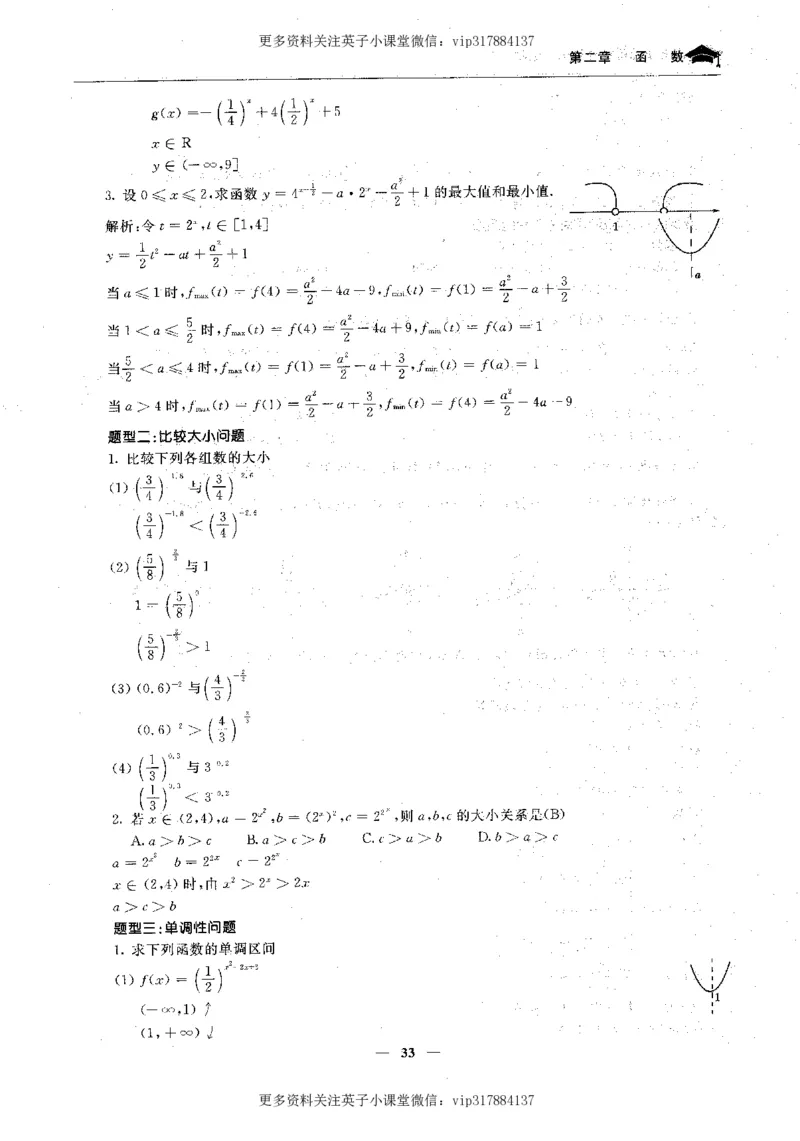 更多资料关注英子小课堂微信：vip317884137
第二章 函 数
g(x) =-(1/4)^x +4(1/2)^x +5
x ∈ R
y ∈ (-∞,9]
3. 设 0 ≤ x ≤ 2,求函数 y = 4^{x-1/2} - a·2^x - a²/2 + 1 的最大值和最小值.
解析:令 t = 2^x,t ∈ [1,4]
y = 1/2 t² - at + a²/2 + 1
1
a
当 a ≤ 1 时,f_max(t) = f(4) = a²/2 - 4a - 9,f_min(t) = f(1) = a²/2 - a + 3/2
当 1 < a ≤ 5/2 时,f_max(t) = f(4) = a²/2 - 4a + 9,f_min(t) = f(a) = 1
当 5/2 < a ≤ 4 时,f_max(t) = f(1) = a²/2 - a + 3/2,f_min(t) = f(a) = 1
当 a > 4 时,f_max(t) = f(1) = a²/2 - a + 3/2,f_min(t) = f(4) = a²/2 - 4a - 9
题型二:比较大小问题
1. 比较下列各组数的大小
(1) (3/4)^{1.8} 与 (3/4)^{2.6}
(3/4)^{-1.8} < (3/4)^{-2.6}
(2) (5/8)^{2/3} 与 1
1 = (5/8)^0
(5/8)^{-2/3} > 1
(3) (0.6)^{-2} 与 (4/3)^{-2/3}
(0.6)^{2} > (4/3)^{2/3}
(4) (1/3)^{0.3} 与 3^{0.2}
(1/3)^{0.3} < 3^{0.2}
2. 若 x ∈ (2,4),a = 2^{x²},b = (2^x)²,c = 2^{2^x},则 a,b,c 的大小关系是(B)
A. a > b > c B. a > c > b C. c > a > b D. b > a > c
a = 2^{x²} b = 2^{2x} c = 2^{2^x}
x ∈ (2,4) 时,由 x² > 2^x > 2x
a > c > b
题型三:单调性问题
1. 求下列函数的单调区间
(1) f(x) = (1/2)^{x²-2x+3}
(-∞,1) ↑
(1,+∞) ↓
1
— 33 —
更多资料关注英子小课堂微信：vip317884137